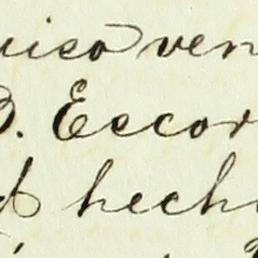 uiso ven
B. Escor
d hech